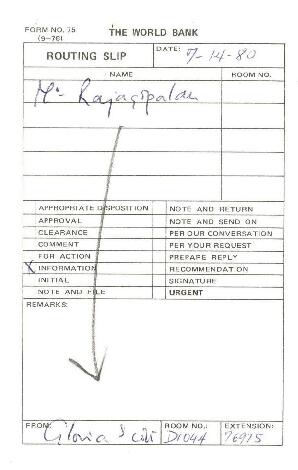 FORM NO. 75
(9-78)
THE WORLD BANK
ROUTING SLIP
DATE: 7-14-80
NAME ROOM NO.
Mr. Rajagopalan
APPROPRIATE DISPOSITION NOTE AND RETURN
APPROVAL NOTE AND SEND ON
CLEARANCE PER OUR CONVERSATION
COMMENT PER YOUR REQUEST
FOR ACTION PREPARE REPLY
X INFORMATION RECOMMENDATION
INITIAL SIGNATURE
NOTE AND FILE URGENT
REMARKS:
FROM: ROOM NO.: EXTENSION:
Gloria D1044 76975